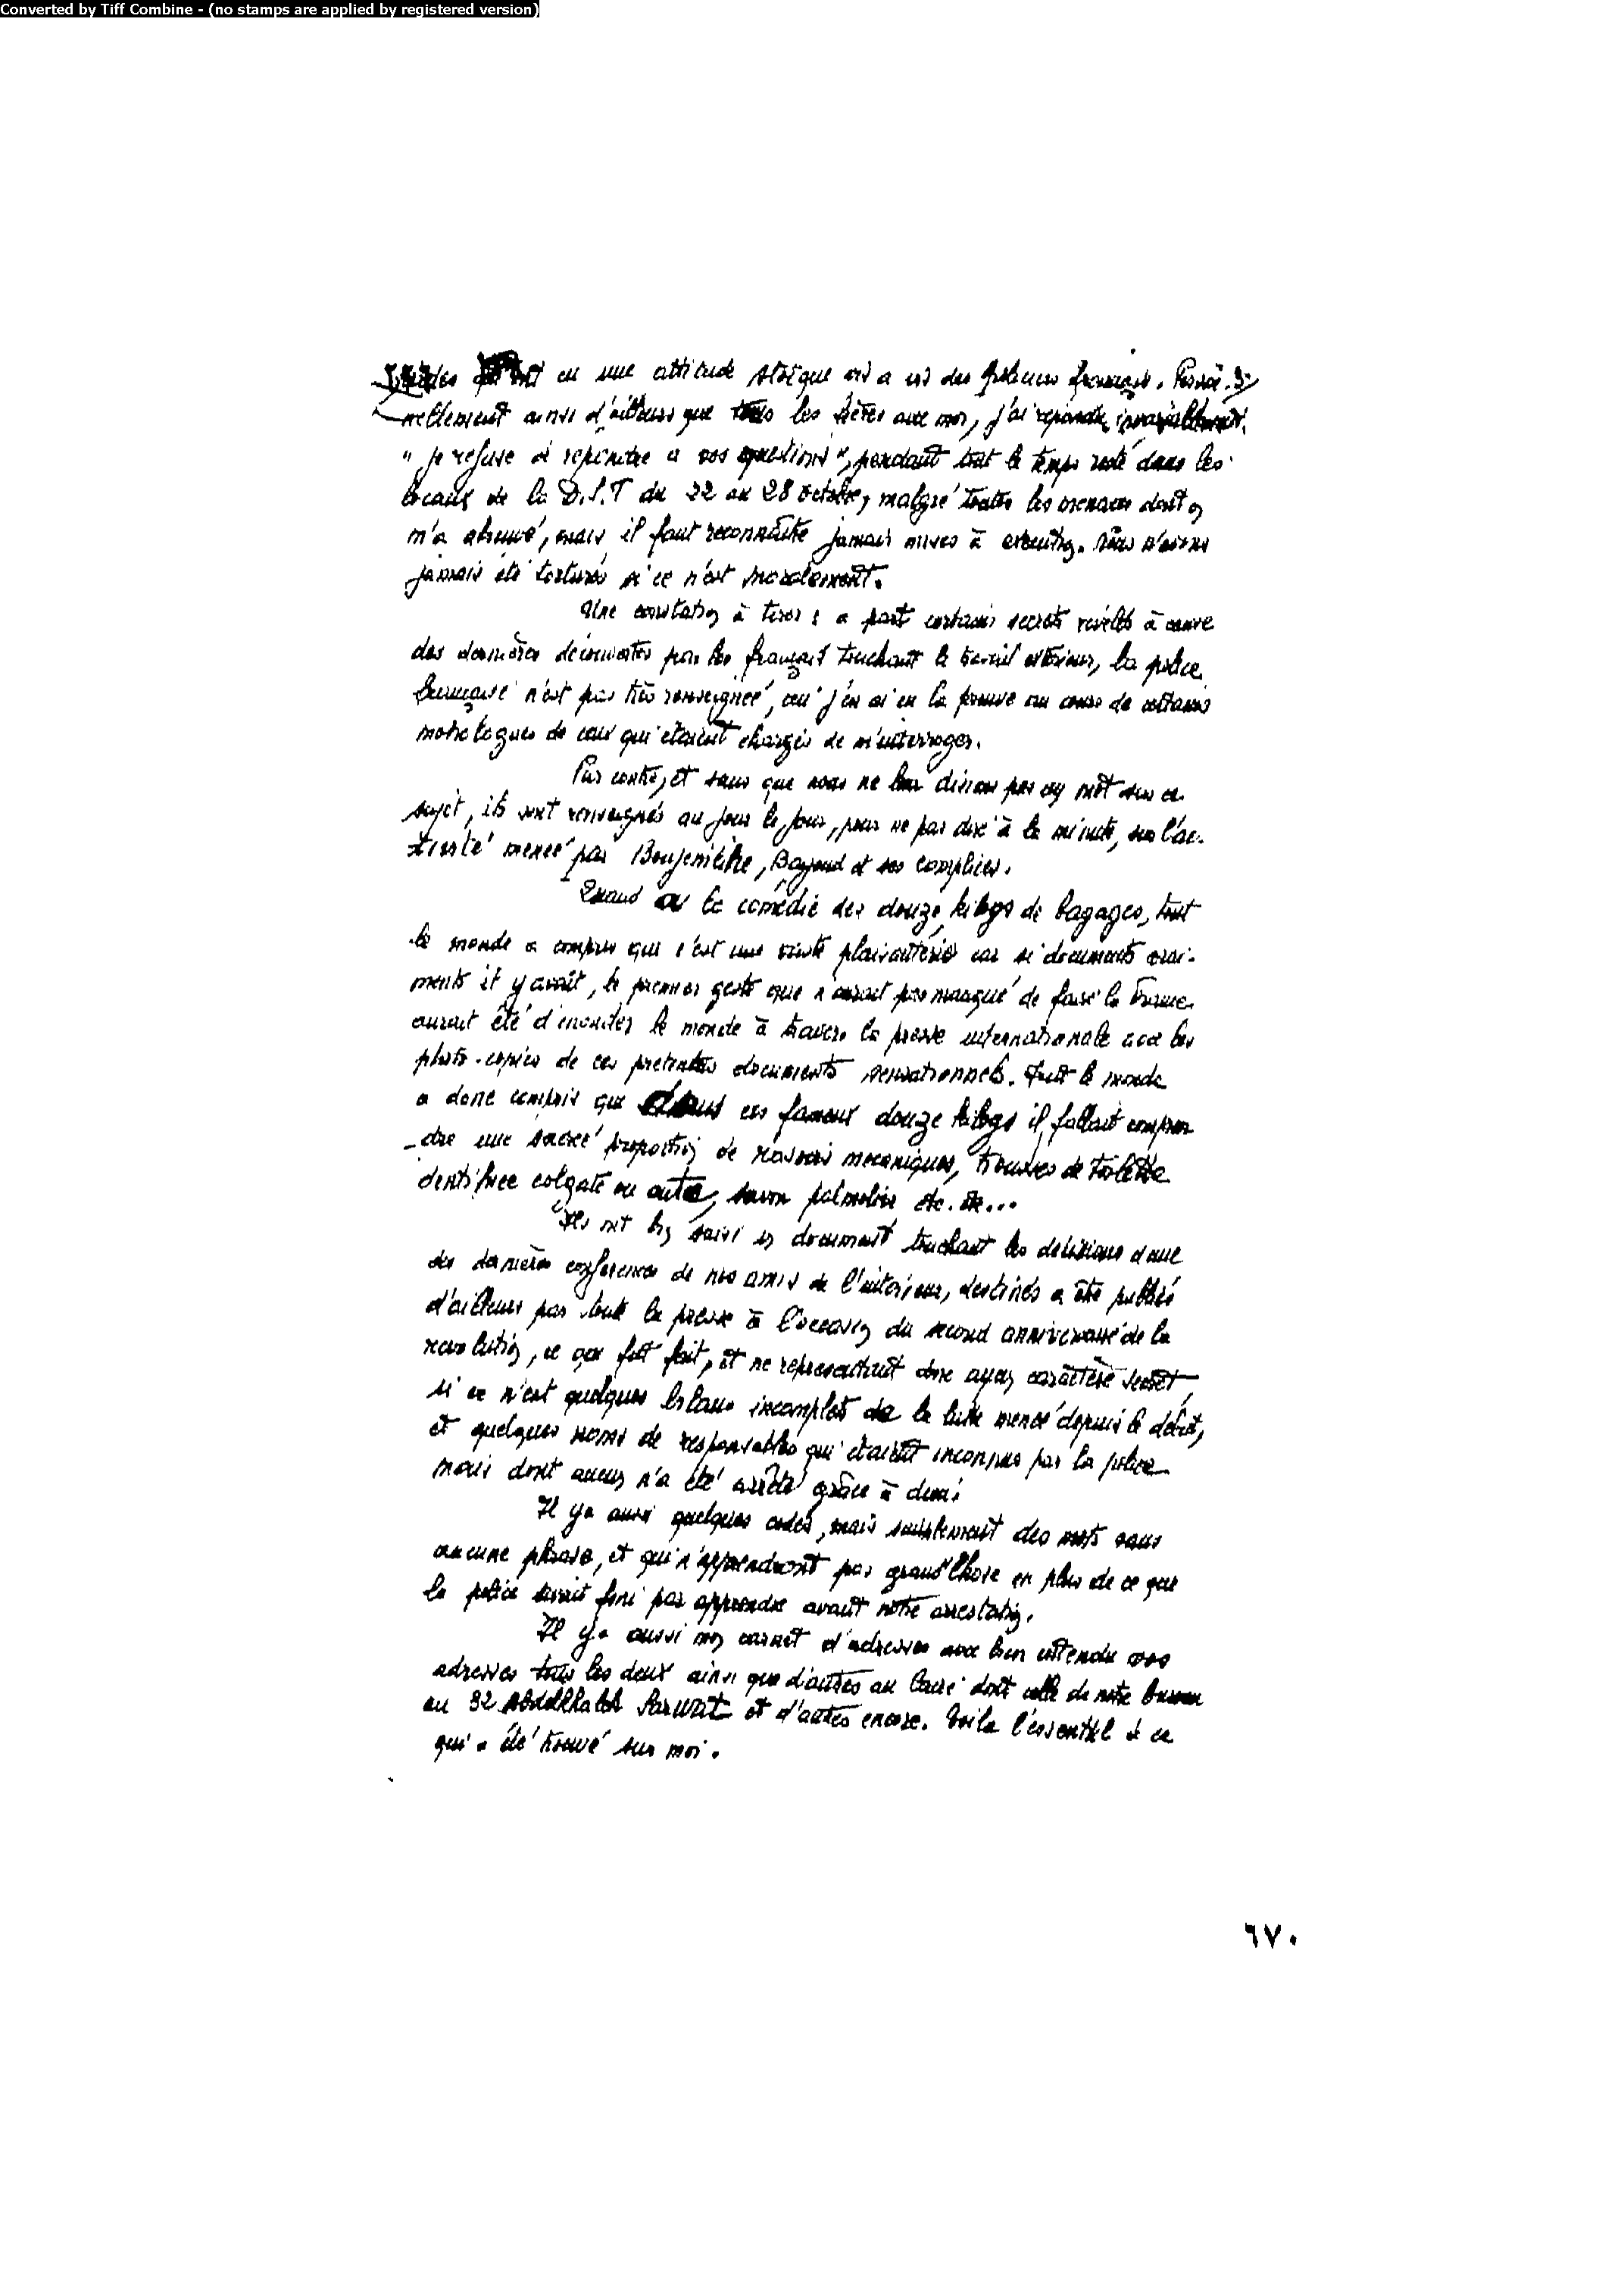 Converted by Tiff Combine - (no stamps are applied by registered version)
ont eu une attitude stoïque vis a vis des policiers français. Person-
nellement ainsi d'ailleurs que tous les frères avec moi, j'ai repondu invariablement
"je refuse de repondre a vos questions", pendant tout le temps resté dans les
locaux de la D.S.T du 22 au 28 octobre, malgré toutes les menaces dont on
m'a abreuvé, mais il faut reconnaître jamais mises à execution. Nous n'avons
jamais été torturés si ce n'est moralement.
Une constatation à tirer : a part certains secrets révélés à cause
des dernières découvertes par les français touchant le travail exterieur, la police
française n'est pas très renseignée, car j'en ai eu la preuve au cours de certains
monologues de ceux qui etaient chargés de m'interroger.
Par contre, et sans que nous ne leur disions pas un mot sur ce
sujet, ils sont renseignés au jour le jour, pour ne pas dire à la minute, sur l'ac-
tivité menée par et ses complices.
Quand à la comédie des douze kilogs de bagages, tout
le monde a compris que c'est une plaisanterie car si documents vrai-
ments il y avait, le premier geste que n'aurait pas manqué de faire la France
aurait été d'inonder le monde à travers la presse internationale avec les
photo-copies de ces pretendus documents sensationnels. Tout le monde
a donc compris que dans ces fameux douze kilogs il fallait compren
-dre une sacrée proportion de rasoirs mecaniques, trousses de toilette
dentifrice colgate ou autre, savon palmolive etc. etc...
Ils ont bien saisi un document touchant les decisions d'une
des dernières conferences de nos amis de l'interieur, destinés a être publiés
d'ailleurs par toute la presse à l'occasion du second anniversaire de la
revolution, ce que fut fait, et ne representant donc aucun caractère secret,
si ce n'est quelques bilans incomplets de la lutte menée depuis le début,
et quelques noms de responsables qui etaient inconnus par la police
mais dont aucun n'a été arrêté grâce à
Il y a aussi quelques codes, mais seulement des mots sans
aucune phrase, et qui n'apprendront pas grand'chose en plus de ce que
la police aurait fini par apprendre avant notre arrestation.
Il y a aussi mon carnet d'adresses avec bien entendu vos
adresses tous les deux ainsi que d'autres au Caire dont celle de notre bureau
au 32 Abdelkhalek Sarwat et d'autres encore. Voila l'essentiel de ce
qui a été trouvé sur moi.
٦٧٠